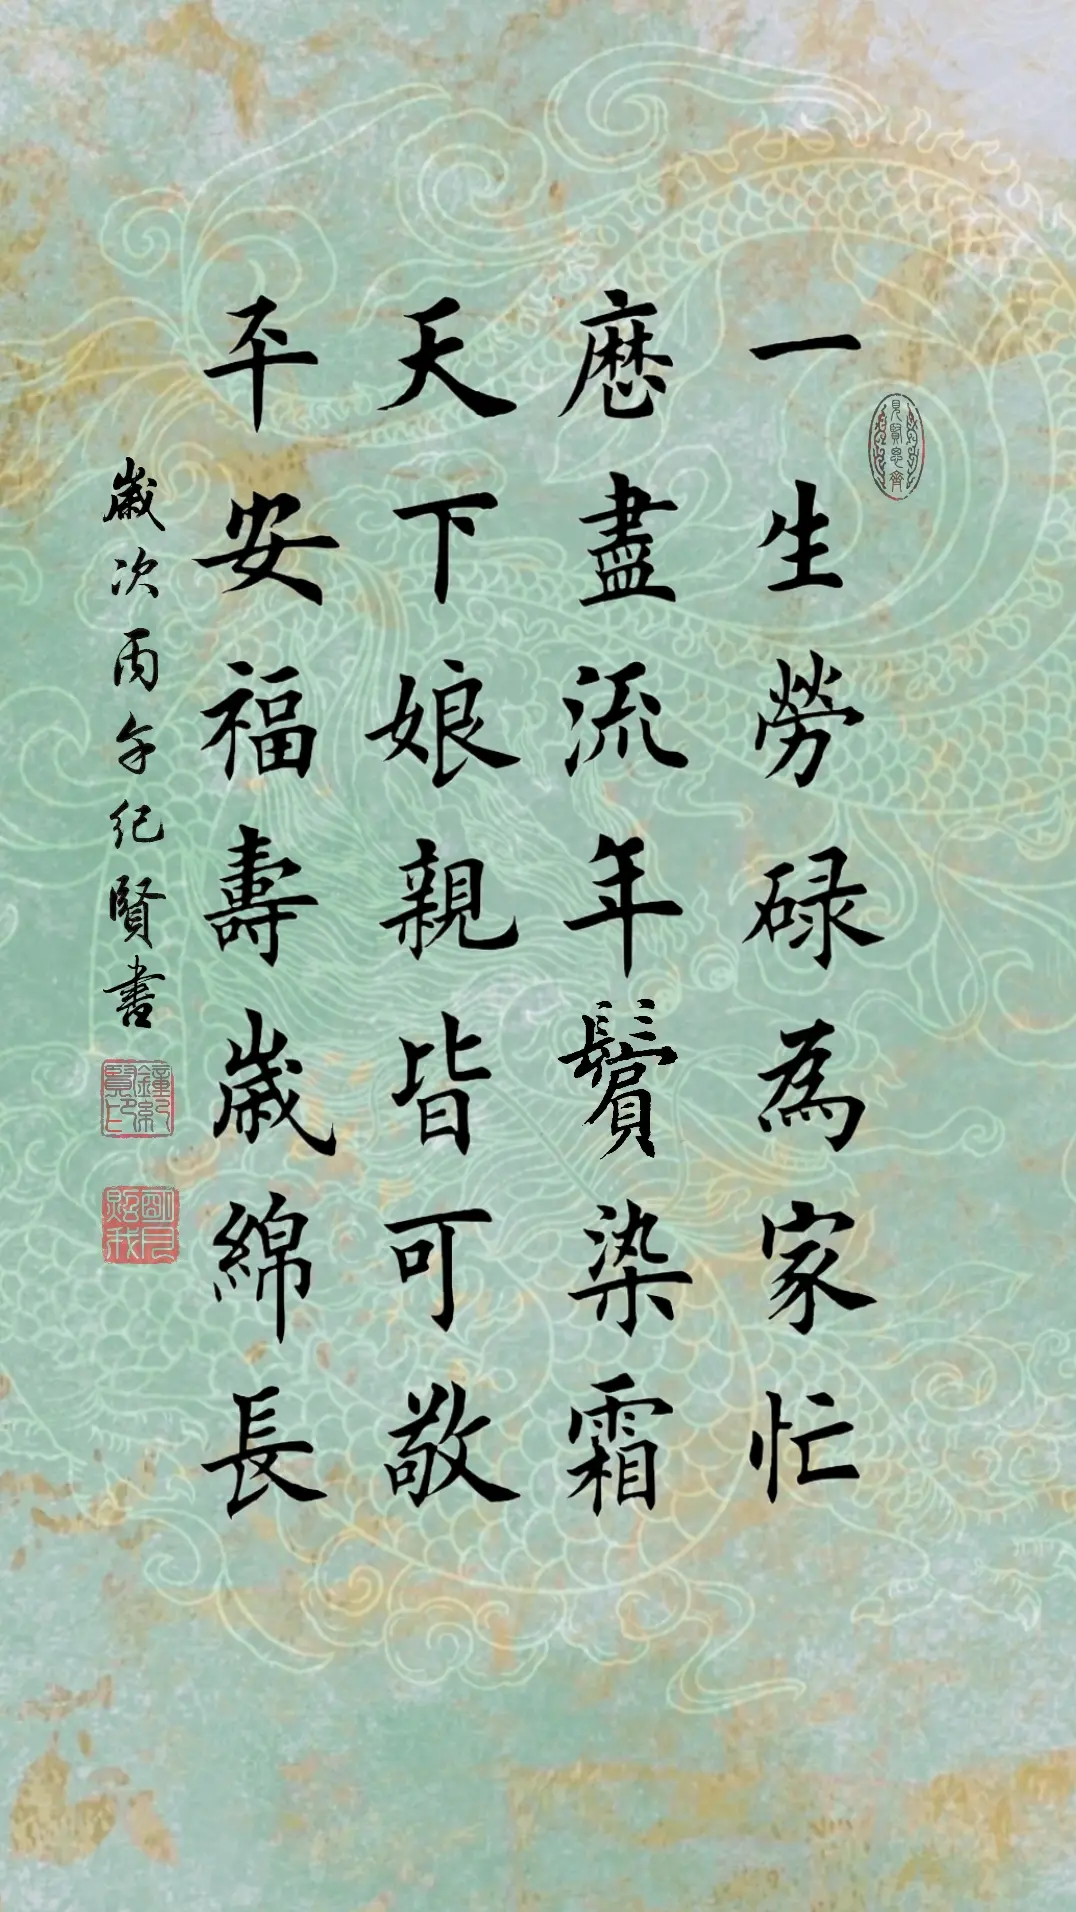 一生勞碌為家忙
歷盡流年鬢染霜
天下娘親皆可敬
平安福壽歲綿長
歲次丙午紀賢書
見賢思齊
鐘紀賢印